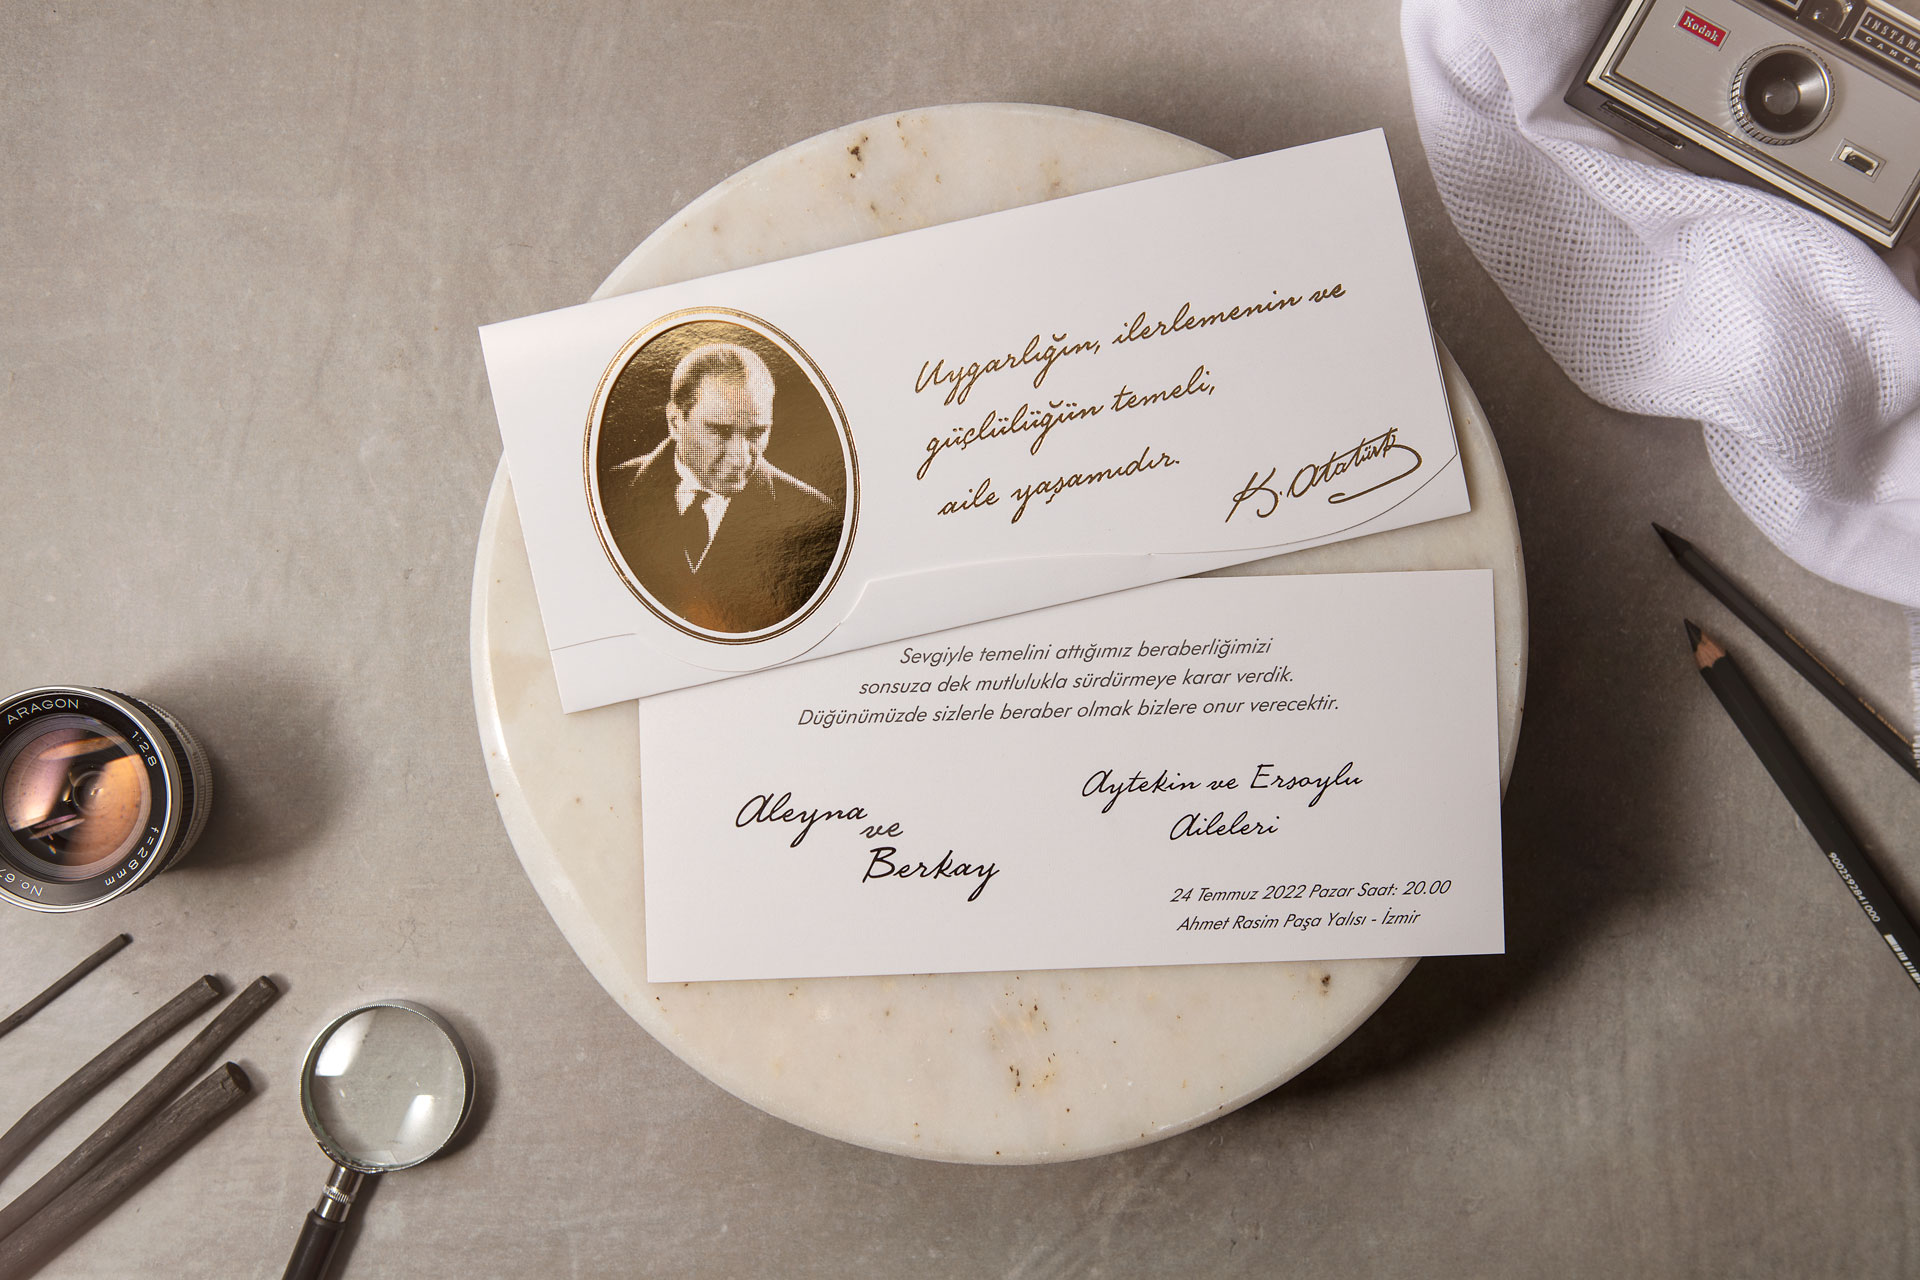 Kodak
INSTAM
CAMER
Uygarlığın, ilerlemenin ve
güçlülüğün temeli,
aile yaşamıdır.
K. Atatürk
Sevgiyle temelini attığımız beraberliğimizi
sonsuza dek mutlulukla sürdürmeye karar verdik.
Düğünümüzde sizlerle beraber olmak bizlere onur verecektir.
Aleyna
ve
Berkay
Aytekin ve Ersoylu
Aileleri
24 Temmuz 2022 Pazar Saat: 20.00
Ahmet Rasim Paşa Yalısı - İzmir
ARAGON
1:2.8
f=28mm
No.67
9002592841000